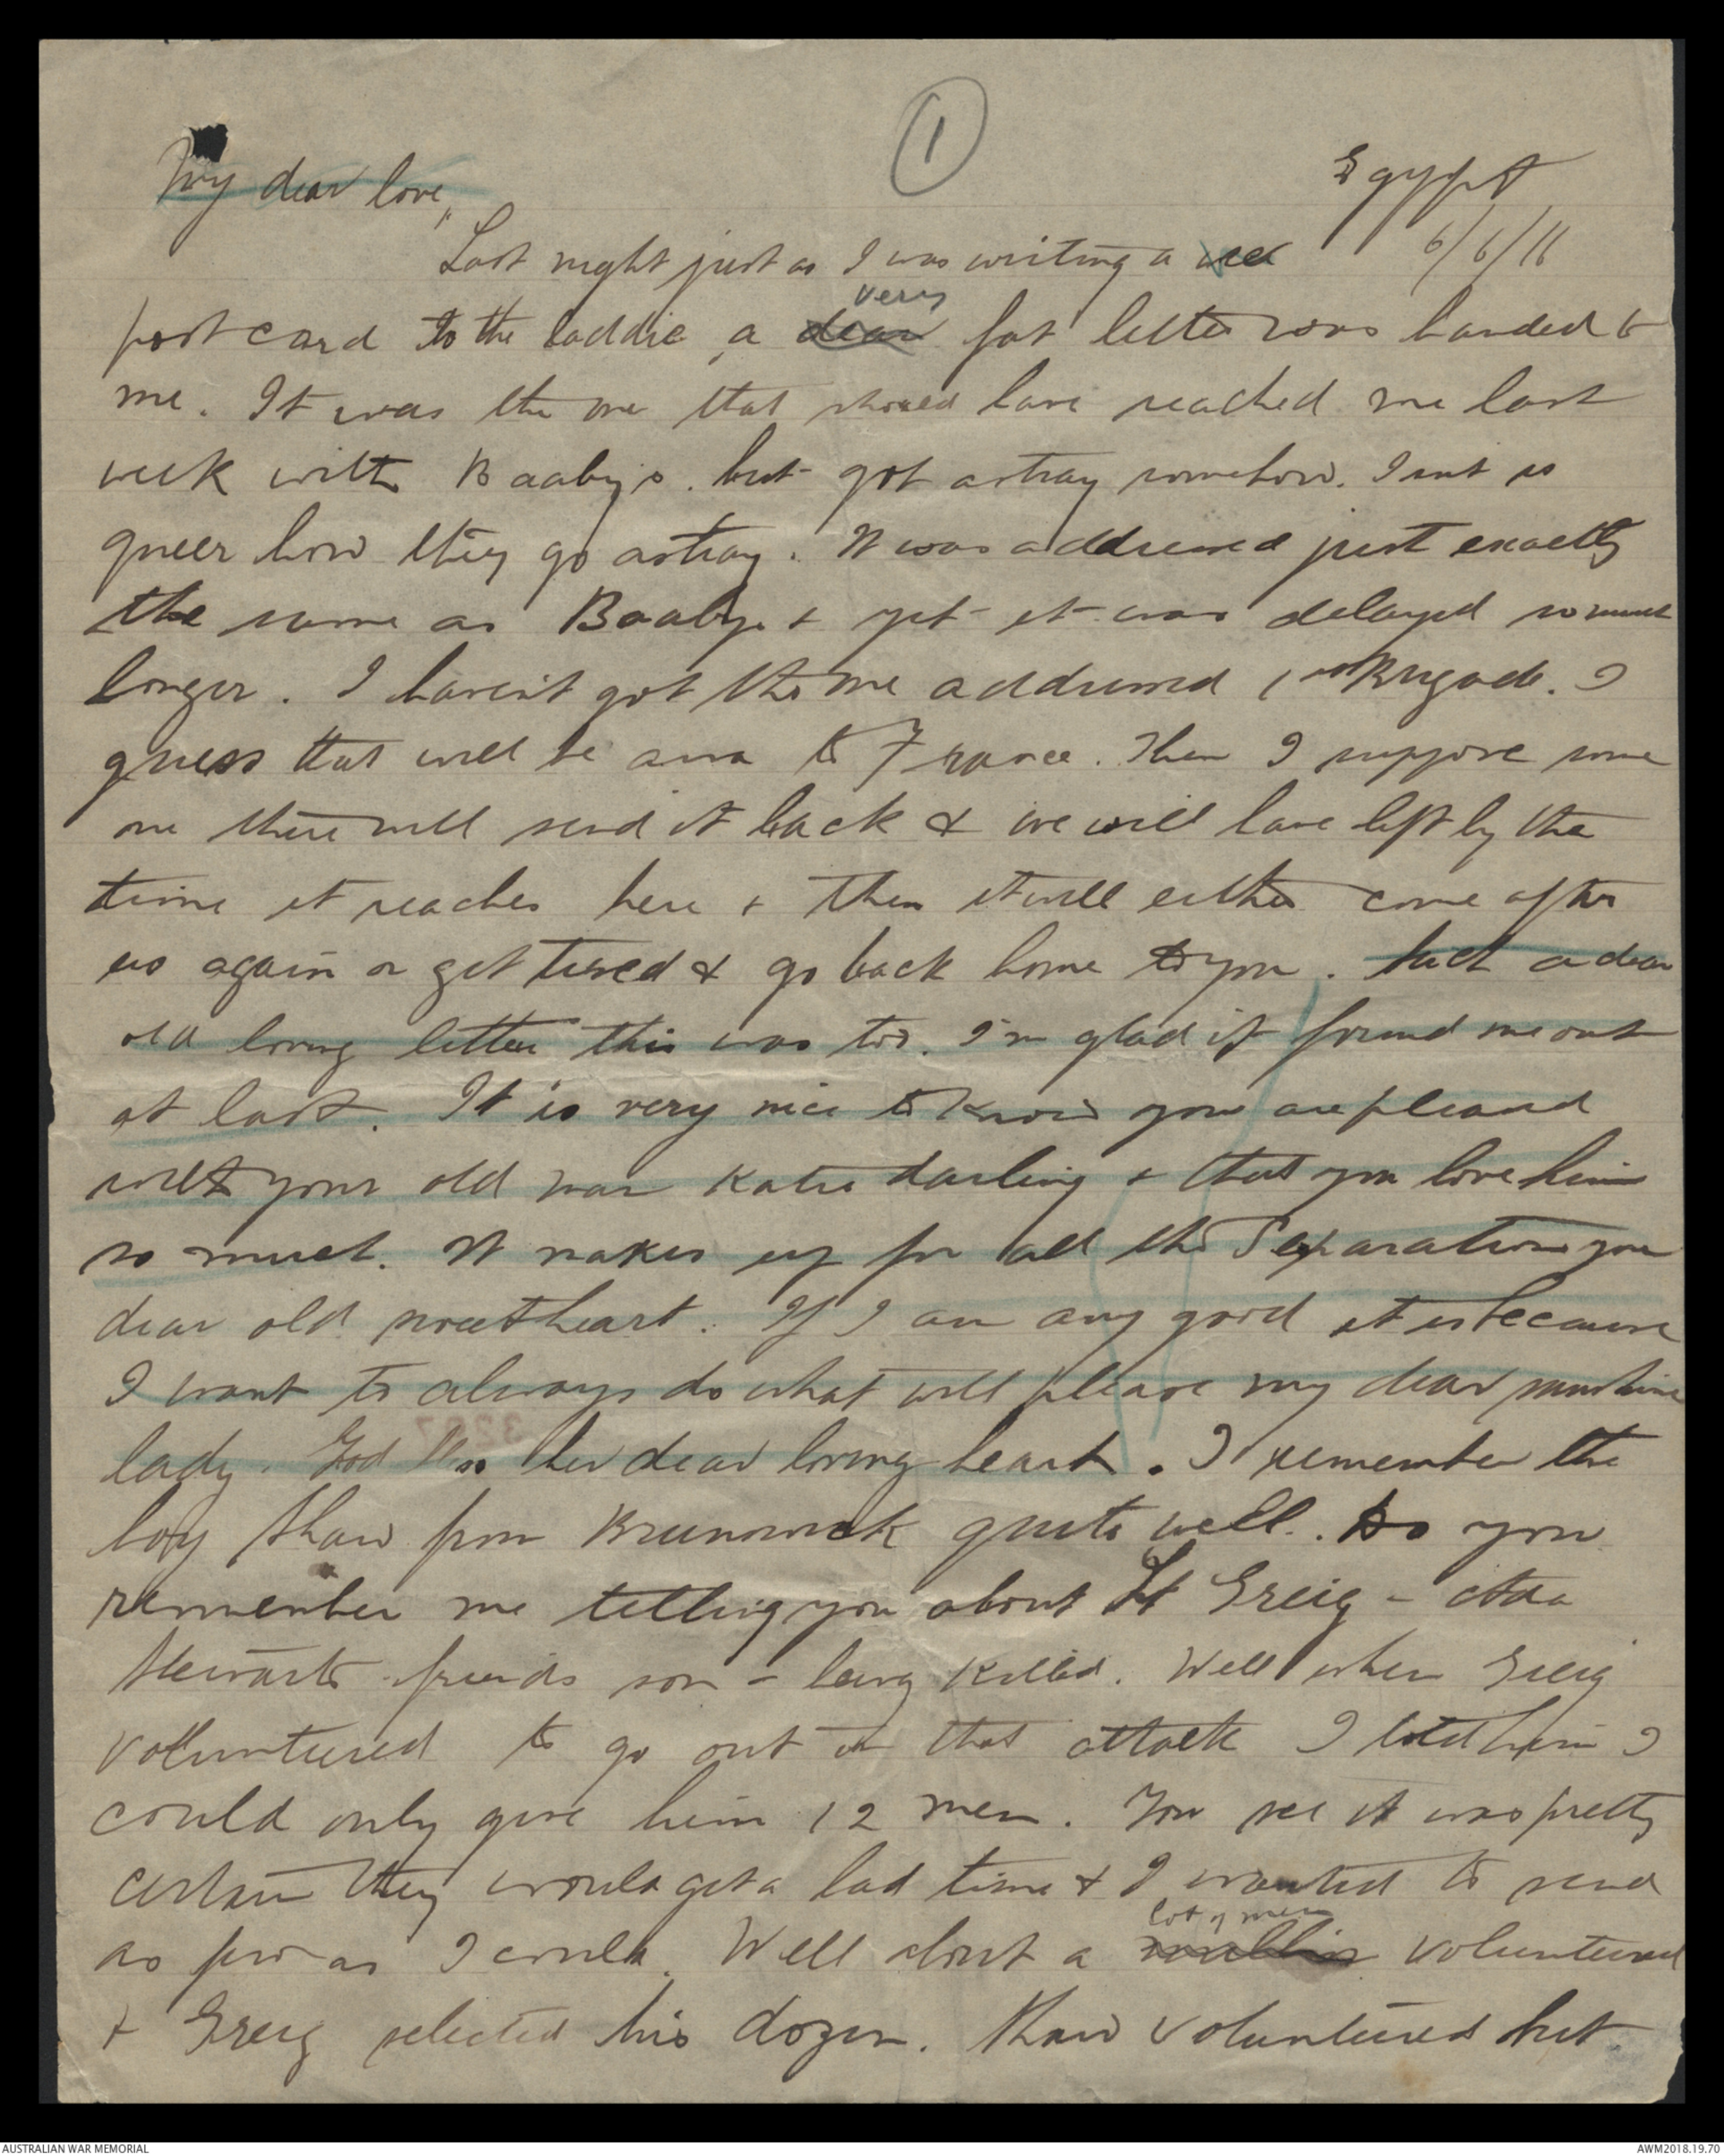 1
Egypt
6/6/16
My dear love,
"Last night just as I was writing a wee
very
post card to the laddie, a dear fat letter was handed to
me. It was the one that should have reached me last
week with Baaby's. but got astray somehow. Isnt is
queer how they go astray. It was addressed just exactly
the same as Baabys & yet it was delayed so much
longer. I haven't got the one addressed 1st Brigade. I
guess that will be awa to France. Then I suppose some
one there will send it back & we will have left by the
time it reaches here & then it will either come after
us again or get tired & go back home to you. Such a dear
old loving letter this was too. I'm glad it found me out
at last. It is very nice to know you are pleased
with your old man Katie darling & that you love him
so much. It makes up for all the Separation you
dear old sweetheart. If I am any good it is because
I want to always do what will please my dear sunshine
lady. God bless her dear loving heart. I remember the
boy Shaw from Brunswick quite well. Do you
remember me telling you about Lt Greig -
Stewarts friends son - being killed. Well when Greig
volunteered to go out in that attack I told him I
could only give him 12 men. You see it was pretty
certain they would get a bad time & I wanted to send
lot of men
as few as I could. Well about a million volunteered
& Greig selected his dozen. Shaw volunteered but
3287
AUSTRALIAN WAR MEMORIAL
AWM2018.19.70